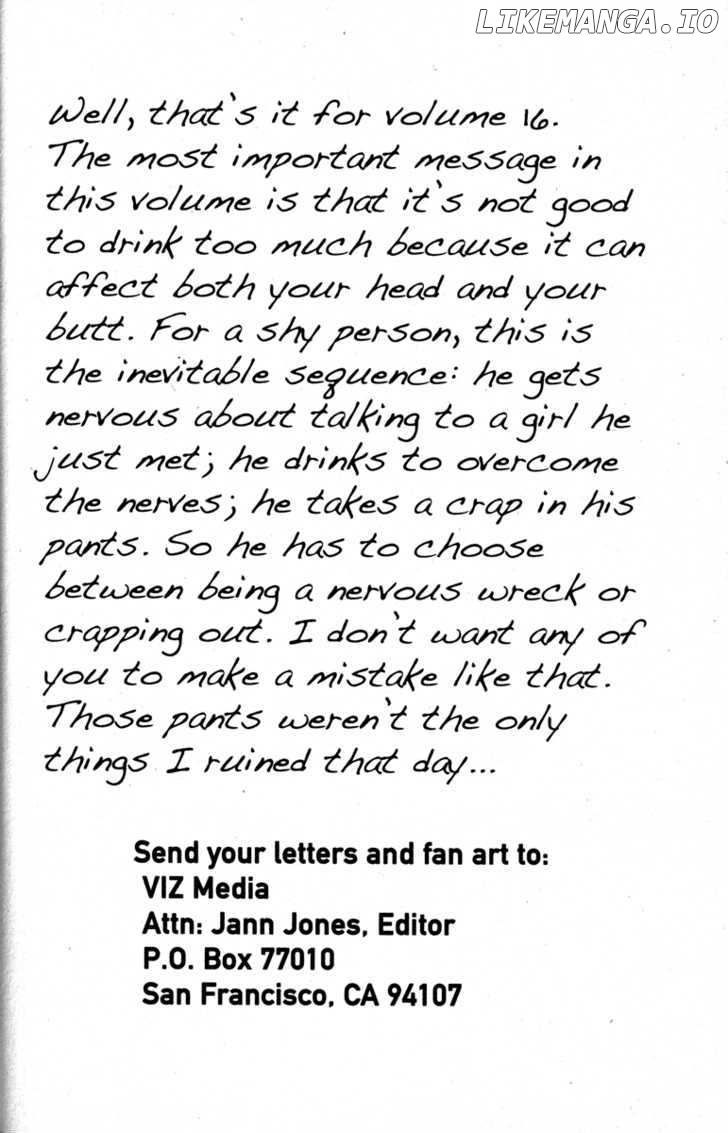 LIKEMANGA.IO
Well, that's it for volume 16.
The most important message in
this volume is that it's not good
to drink too much because it can
affect both your head and your
butt. For a shy person, this is
the inevitable sequence: he gets
nervous about talking to a girl he
just met; he drinks to overcome
the nerves; he takes a crap in his
pants. So he has to choose
between being a nervous wreck or
crapping out. I don't want any of
you to make a mistake like that.
Those pants weren't the only
things I ruined that day...
Send your letters and fan art to:
VIZ Media
Attn: Jann Jones, Editor
P.O. Box 77010
San Francisco, CA 94107